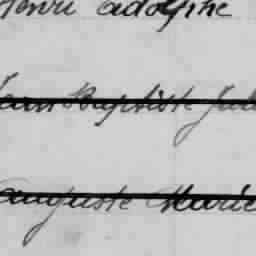 Henri adolphe
Jean Baptiste Jul
auguste Marie